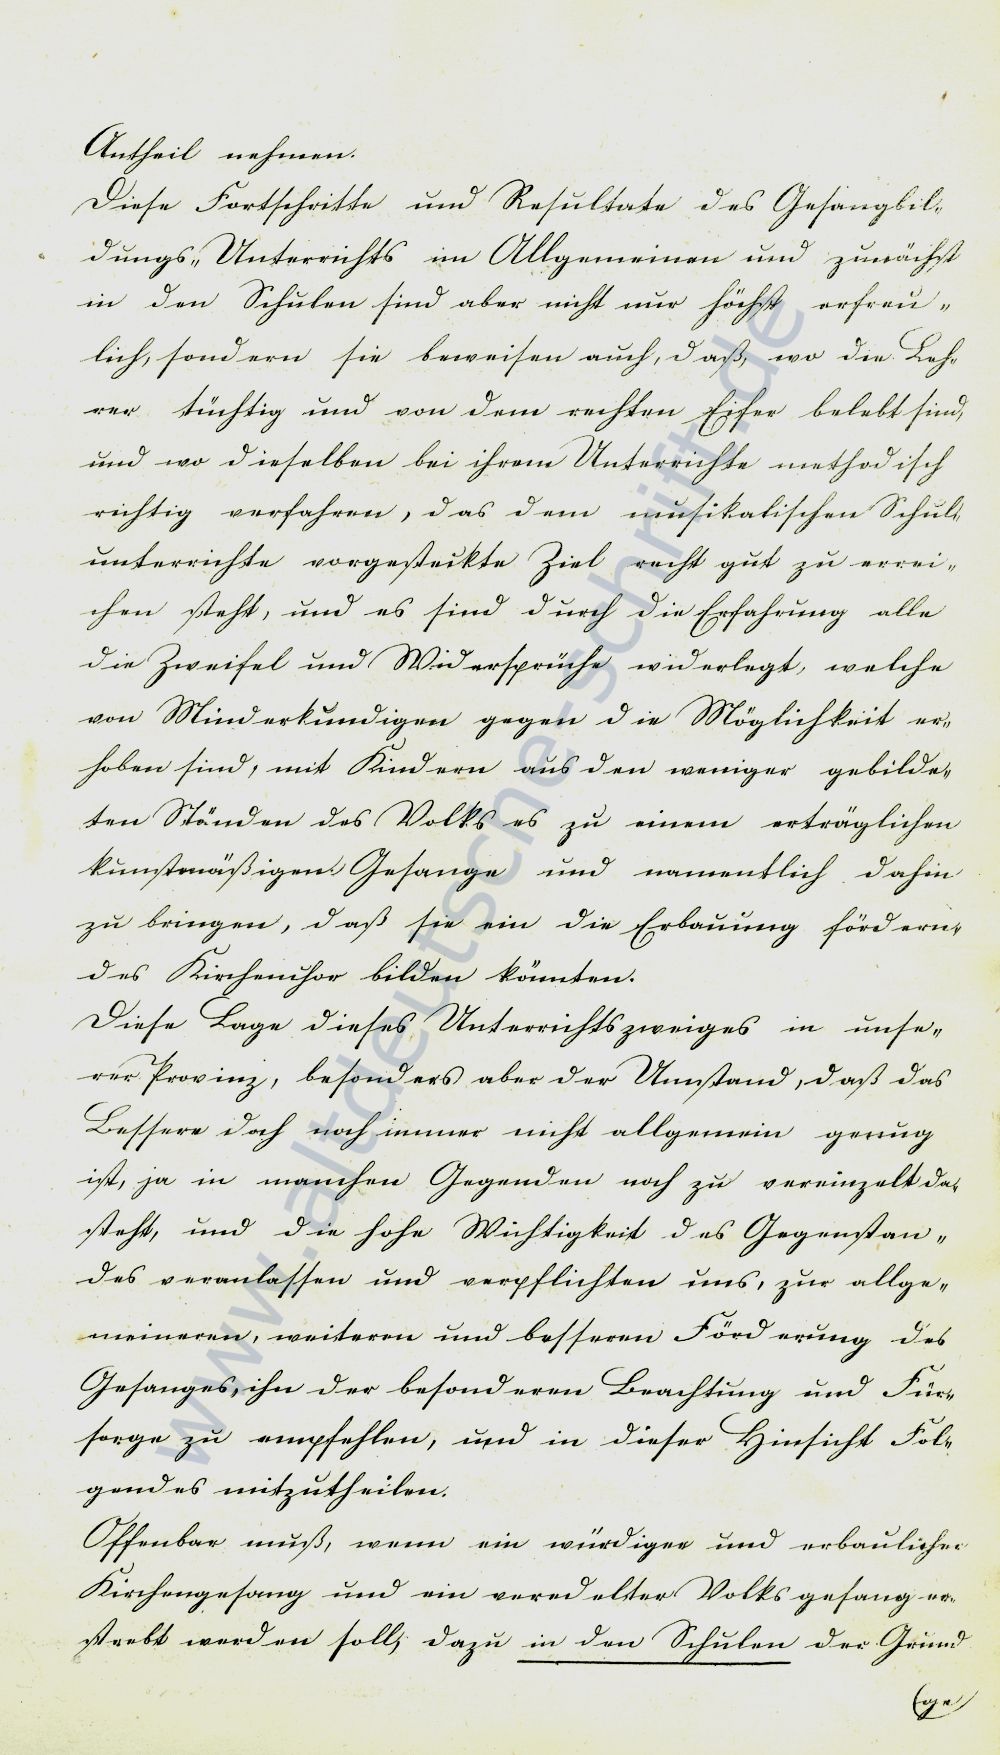 Antheil nehmen.
Diese Fortschritte und Resultate des Gesangbil-
dungs-Unterrichts im Allgemeinen und zunächst
in den Schulen sind aber nicht nur höchst erfreu-
lich, sondern sie beweisen auch, daß, wo die Leh-
rer tüchtig und von dem rechten Eifer belebt sind,
und wo dieselben bei ihrem Unterrichte methodisch
richtig verfahren, das dem musikalischen Schul-
unterrichte vorgesteckte Ziel recht gut zu errei-
chen steht, und es sind durch die Erfahrung alle
die Zweifel und Widersprüche widerlegt, welche
von Minderkundigen gegen die Möglichkeit er-
hoben sind, mit Kindern aus den weniger gebilde-
ten Ständen des Volks es zu einem erträglichen
kunstmäßigen Gesange und namentlich dahin
zu bringen, daß sie ein die Erbauung fördern-
des Kirchenchor bilden könnten.
Diese Lage dieses Unterrichtszweiges in unse-
rer Provinz, besonders aber der Umstand, daß das
Bessere doch noch immer nicht allgemein genug
ist, ja in manchen Gegenden noch zu vereinzelt da-
steht, und die hohe Wichtigkeit des Gegenstan-
des veranlassen und verpflichten uns, zur allge-
meineren, weiteren und besseren Förderung des
Gesanges, ihn der besonderen Beachtung und Für-
sorge zu empfehlen, und in dieser Hinsicht Fol-
gendes mitzutheilen.
Offenbar muß, wenn ein würdiger und erbaulicher
Kirchengesang und ein veredelter Volksgesang er-
strebt werden soll, dazu in den Schulen der Grund
(ge
www.altdeutsche-schrift.de